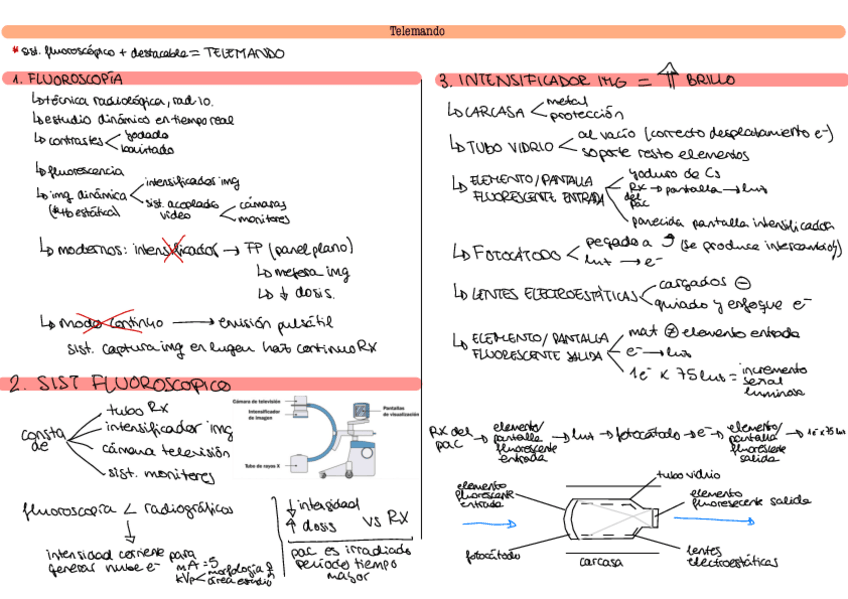 Telemando
* sist. fluoroscópico + destacable = TELEMANDO
1. FLUOROSCOPÍA
↳ técnica radiológica, rad 10.
↳ estudio dinámico en tiempo real
↳ contrastes < yodado
baritado
↳ fluorescencia
↳ img dinámica < intensificadores img
(*tb estática) sist. acoplado video < cámaras
monitores
↳ modernos: intensificador → FP (panel plano)
↳ mejora img
↳ ↓ dosis.
↳ modo continuo → emisión pulsátil
sist. captura img en lugar haz continuo Rx
2. SIST FLUOROSCOPICO
consta de
tubo Rx
intensificador img
cámara televisión
sist. monitores
Cámara de televisión
Intensificador de imagen
Pantallas de visualización
Tubo de rayos X
fluoroscopia < radiográficos
↓
intensidad corriente para
generar nube e-
mA = 5
kVp < morfología y
área estudio
↓ intensidad
↑ dosis vs RX
pac es irradiado
periodo tiempo
mayor
3. INTENSIFICADOR IMG = ↑ BRILLO
↳ CARCASA < metal
protección
↳ TUBO VIDRIO < al vacío (correcto desplazamiento e-)
soporte resto elementos
↳ ELEMENTO/PANTALLA
FLUORESCENTE ENTRADA
yoduro de Cs
Rx del pac → pantalla → luz
parecida pantalla intensificador
↳ FOTOCÁTODO < pegado a ⤴ (se produce intercambio)
luz → e-
↳ LENTES ELECTROESTÁTICAS < cargados ⊖
guiado y enfoque e-
↳ ELEMENTO/PANTALLA
FLUORESCENTE SALIDA
mat ≠ elemento entrada
e- → luz
1e- x 75 luz = incremento
señal
luminosa
Rx del pac → elemento/pantalla fluorescente entrada → luz → fotocátodo → e- → elemento/pantalla fluorescente salida → 1e- x 75 luz
tubo vidrio
elemento fluorescente entrada
elemento fluorescente salida
fotocátodo
carcasa
lentes electroestáticas